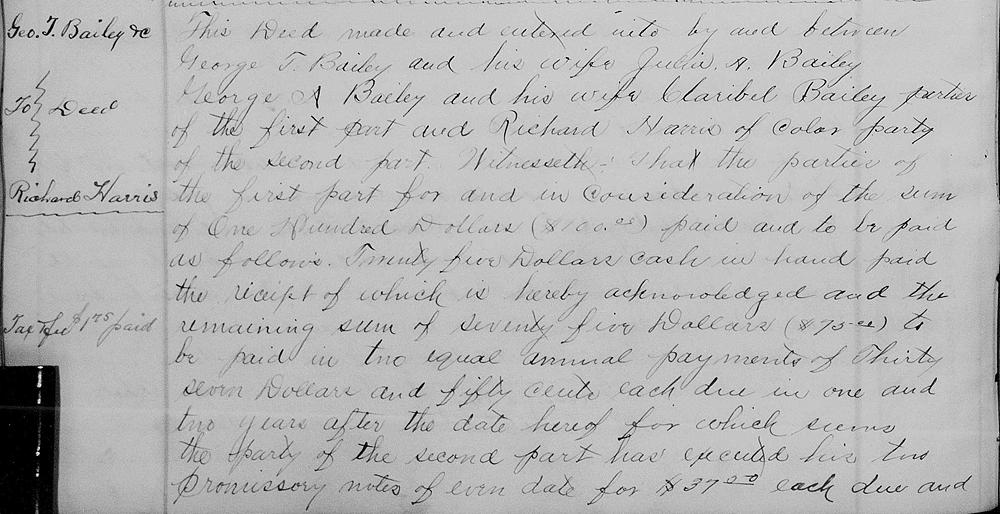 Geo. T. Bailey &c
To Deed
Richard Harris
Tax & fee $1.75 paid
This Deed made and entered into by and between
George T. Bailey and his wife Julia. A. Bailey
George A Bailey and his wife Claribel Bailey parties
of the first part and Richard Harris of Color party
of the second part. Witnesseth: That the parties of
the first part for and in consideration of the sum
of One Hundred Dollars ($100.00) paid and to be paid
as follows. Twenty five Dollars cash in hand paid
the receipt of which is hereby acknowledged and the
remaining sum of seventy five Dollars ($75.00) to
be paid in two equal annual payments of Thirty
seven Dollars and fifty cents each due in one and
two years after the date hereof for which sums
the party of the second part has executed his two
promissory notes of even date for $37.50 each due and